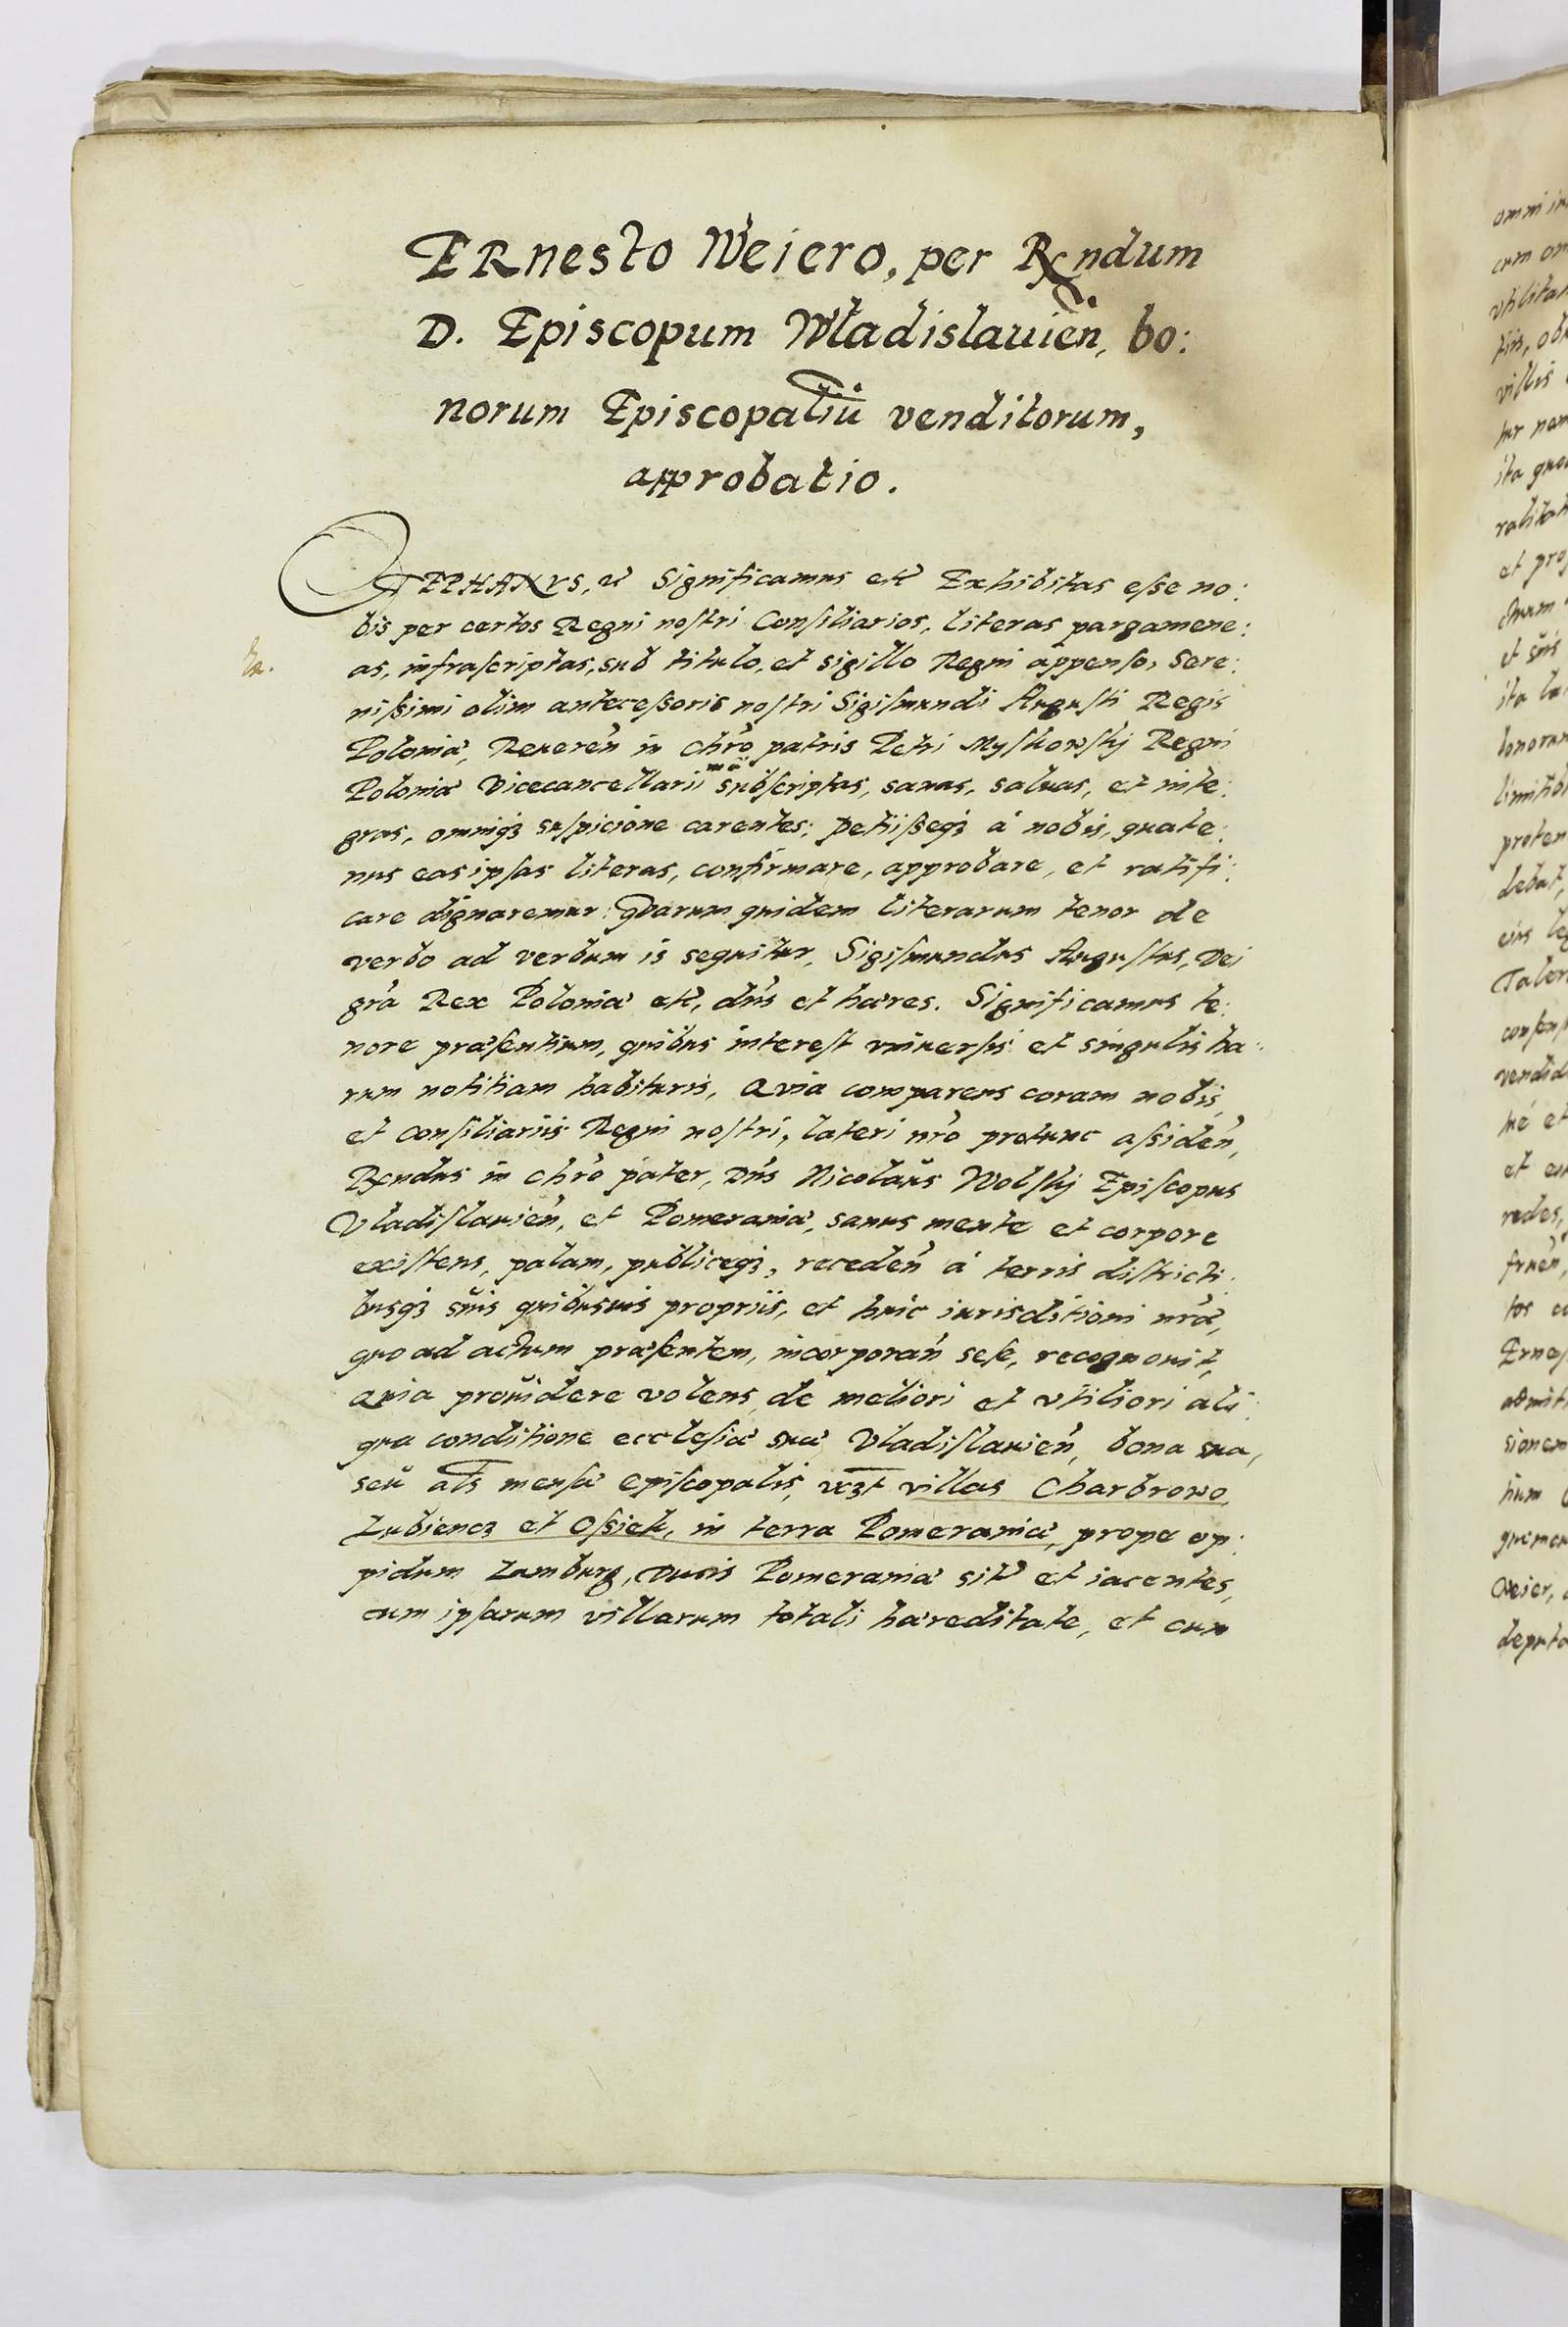 ERnesto Weiero, per Rndum
D. Episcopum Wladislauien, bo:
norum Episcopaliũ venditorum,
approbatio.
STEPHANVS, etc Significamus etc Exhibitas eſse no:
bis per certos Regni noſtri Conſiliarios, literas pargamene:
as, infraſcriptas, sub titulo, et sigillo Regni appenſo, Sere:
niſsimi olim anteceſsoris noſtri Sigiſmundi Auguſti Regis
Poloniæ, Reueren̄ in Chrō patris Petri Myſkowſkÿ Regni
Poloniæ Vicecancellarii manũ subſcriptas, sanas, saluas, et inte:
gras, omniqʒ suſpicione carentes; petiiſseqʒ à nobis, quate:
nus eas ipſas literas, confirmare, approbare, et ratifi:
care dignaremur: Quarum quidem literarum tenor de
verbo ad verbum is sequitur, Sigiſmundus Auguſtus, Dei
grā Rex Poloniæ etc, dn̄s et hæres. Significamus te:
nore præſentium, quibus intereſt vniuerſis et singulis ha:
rum notitiam habituris, Quia comparens coram nobis,
et conſiliariis Regni noſtri, lateri nrō protunc aſsiden̄,
Rndus in Chrō pater, Dn̄s Nicolaũs Wolſkÿ Epiſcopus
Vladiſlauien̄, et Pomeraniæ, sanus mente et corpore
exiſtens, palam, publiceqʒ, receden̄ à terris diſtricti:
busqʒ suis quibusuis propriis, et huic iurisditioni nrǣ,
quo ad actum præſentem, incorporan̄ seſe, recognouit,
Quia prouidere volens de meliori et vtiliori ali:
qua conditione eccleſiæ suæ Vladiſlauien̄, bona sua,
seũ als menſæ epiſcopalis, vczt villas Charbrowo,
Lubiencz et Oſsiek, in terra Pomeraniæ, prope op:
pidum Lamburg, Ducis Pomeraniæ sitas et iacentes,
cum ipſarum villarum totali hæreditate, et cum